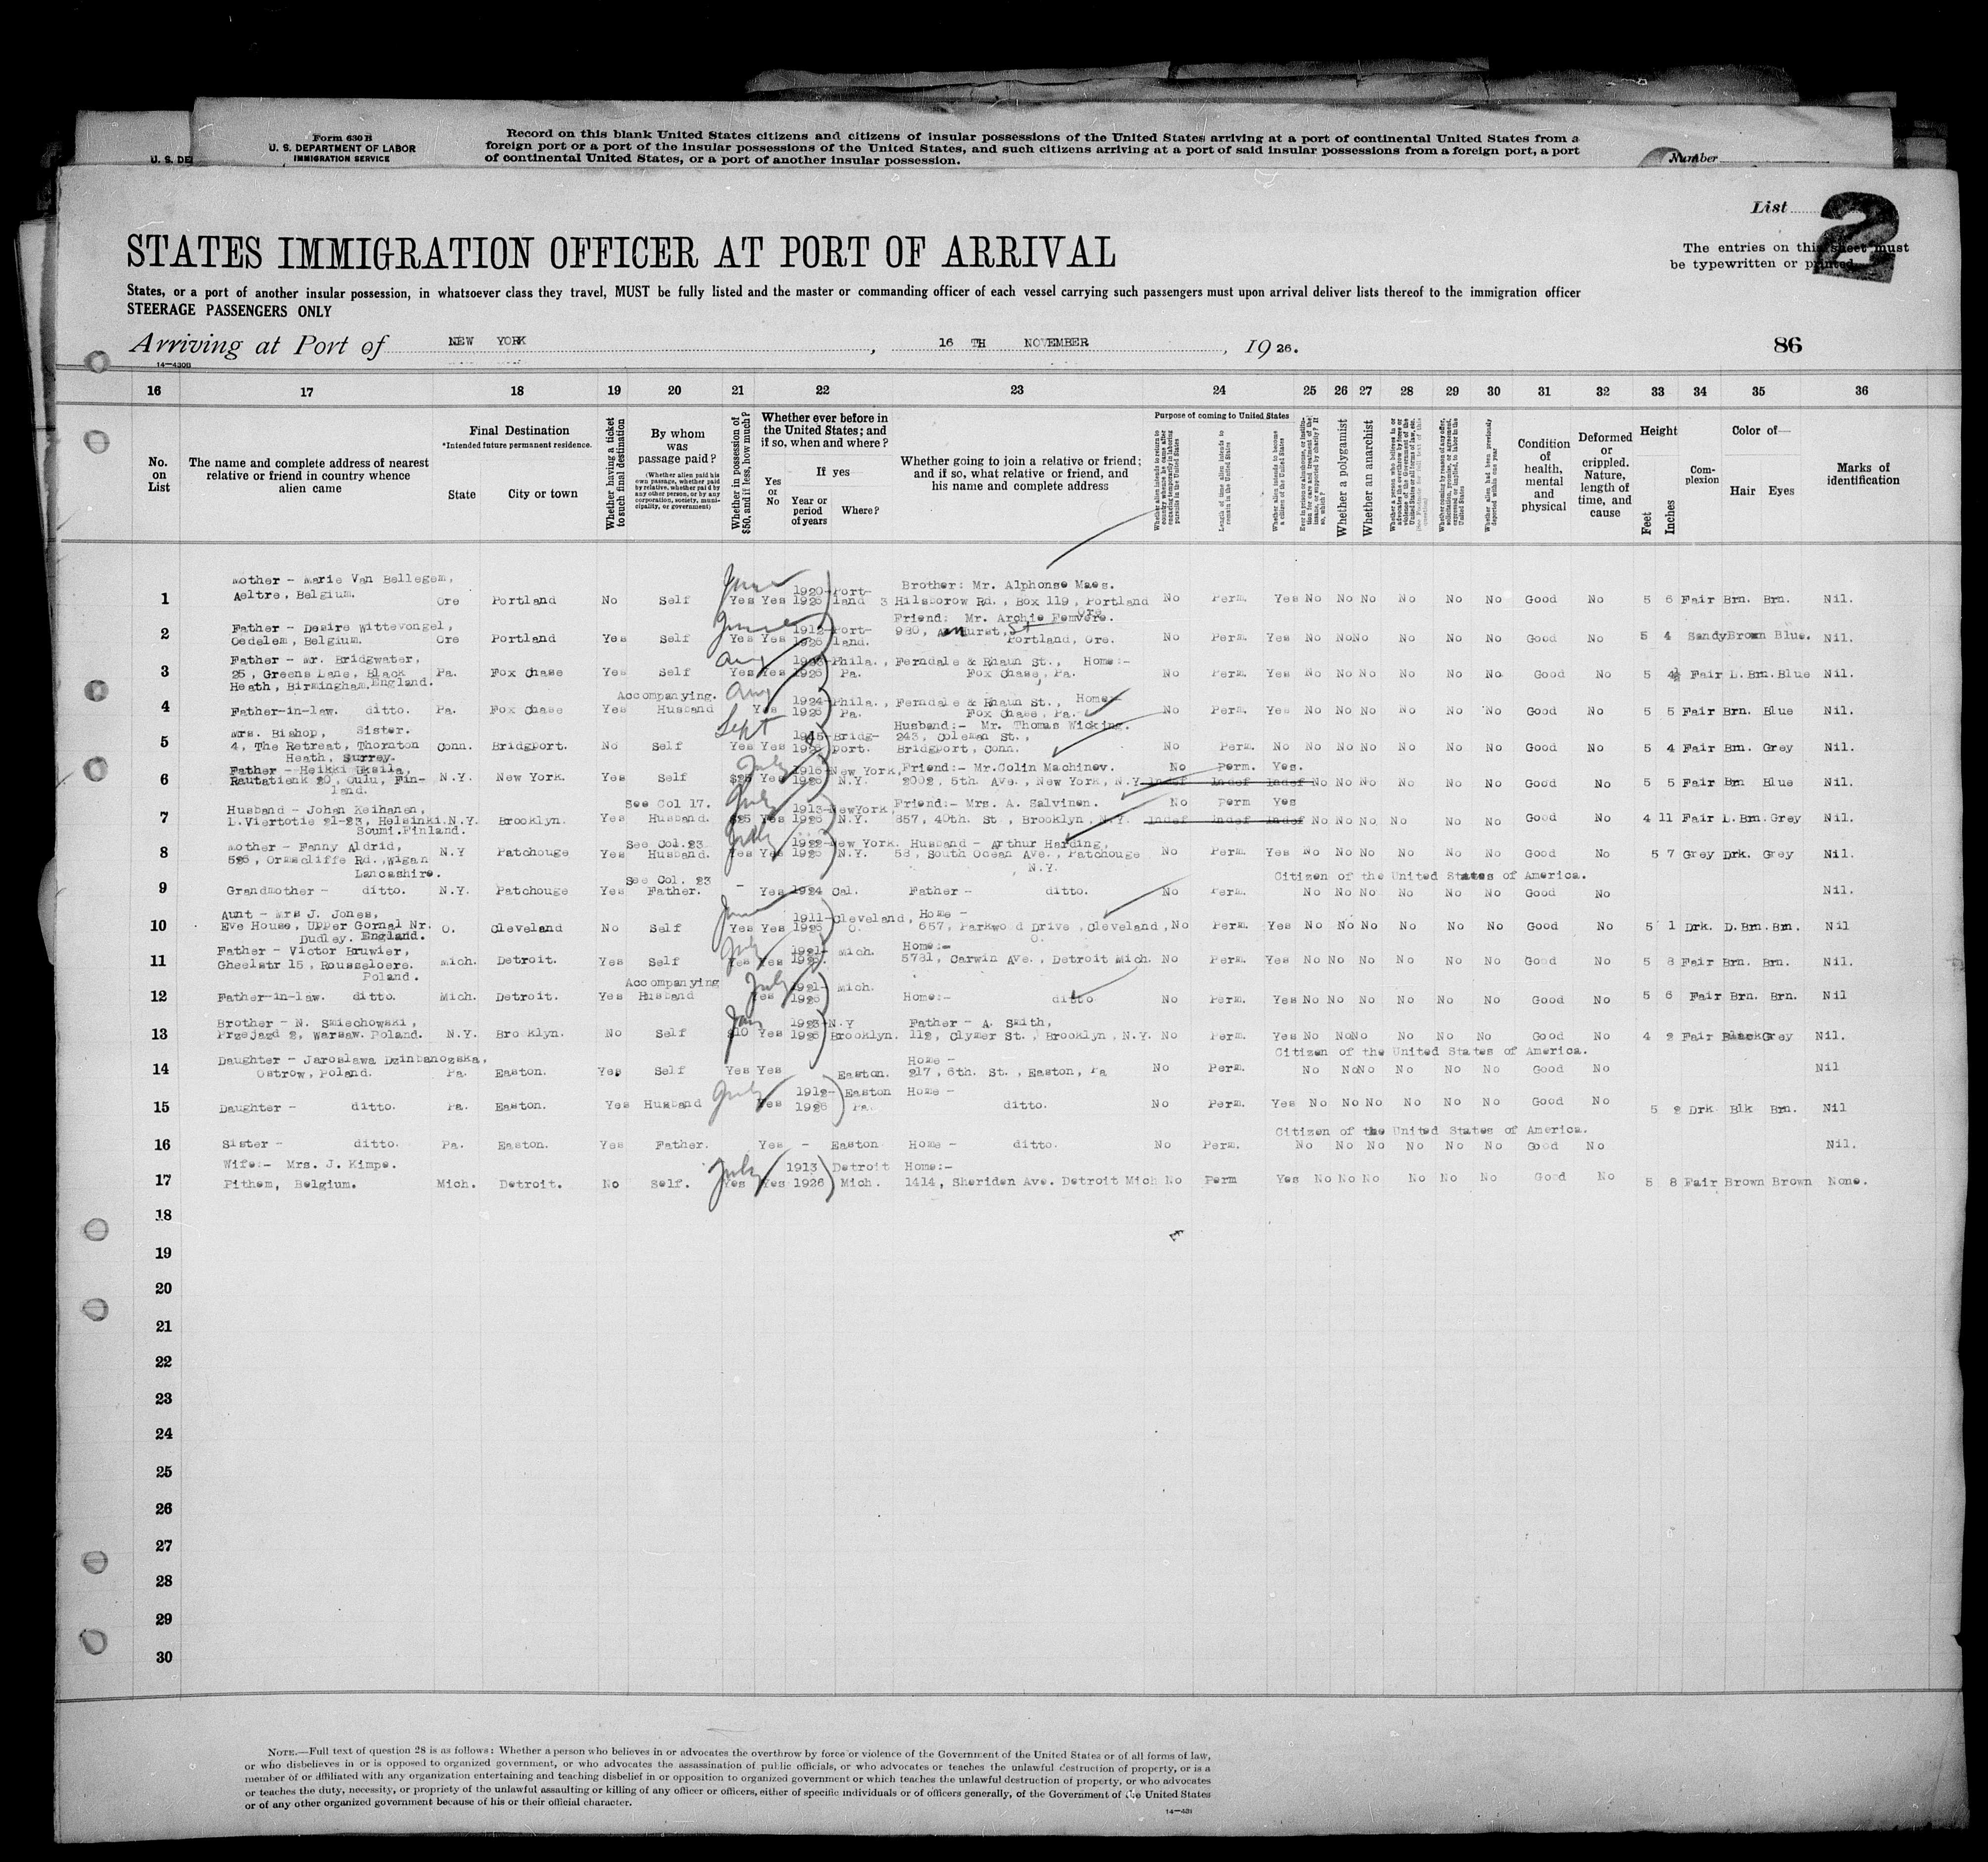 Form 630 B
U. S. DEPARTMENT OF LABOR
IMMIGRATION SERVICE
U. S. DE
Record on this blank United States citizens and citizens of insular possessions of the United States arriving at a port of continental United States from a
foreign port or a port of the insular possessions of the United States, and such citizens arriving at a port of said insular possessions from a foreign port, a port
of continental United States, or a port of another insular possession.
Number
List 2
STATES IMMIGRATION OFFICER AT PORT OF ARRIVAL
The entries on this sheet must
be typewritten or printed.
States, or a port of another insular possession, in whatsoever class they travel, MUST be fully listed and the master or commanding officer of each vessel carrying such passengers must upon arrival deliver lists thereof to the immigration officer
STEERAGE PASSENGERS ONLY
Arriving at Port of NEW YORK, 16 TH NOVEMBER, 19 26. 86
14-430B
16 17 18 19 20 21 22 23 24 25 26 27 28 29 30 31 32 33 34 35 36
No. on List
The name and complete address of nearest relative or friend in country whence alien came
Final Destination
*Intended future permanent residence.
State City or town
Whether having a ticket to such final destination
By whom was passage paid?
(Whether alien paid his own passage, whether paid by relative, whether paid by any other person, or by any corporation, society, municipality, or government)
Whether in possession of $50, and if less, how much?
Whether ever before in the United States; and if so, when and where?
Yes or No
If yes
Year or period of years
Where?
Whether going to join a relative or friend; and if so, what relative or friend, and his name and complete address
Purpose of coming to United States
Whether alien intends to return to country whence he came after engaging temporarily in laboring pursuits in the United States
Length of time alien intends to remain in the United States
Whether alien intends to become a citizen of the United States
Whether a polygamist
Whether an anarchist
Whether alien had been previously deported within one year
Condition of health, mental and physical
Deformed or crippled. Nature, length of time, and cause
Height
Feet Inches
Complexion
Color of—
Hair Eyes
Marks of identification
Mother - Marie Van Bellegem, 1920- Port- Brother: Mr. Alphonse Maes.
1 Aeltre, Belgium. Ore Portland No Self Yes Yes 1926 land 3 Hilsborow Rd., Box 119, Portland No Perm. Yes No No No No No No Good No 5 6 Fair Brn. Brn. Nil.
June
Ore.
Father - Desire Wittevongel, 1912- Port- Friend: Mr. Archie Femvere.
2 Oedelem, Belgium. Ore Portland Yes Self Yes Yes 1926 land. 980, Amhurst, St Portland, Ore. No Perm Yes No No No No No No Good No 5 4 Sandy Brown Blue. Nil.
June
Father - Mr. Bridgwater, Phila., Ferndale & Rhaun St., Home:-
3 25, Greens Lane, Black Pa. Fox Chase Yes Self Yes Yes 1926 Pa. Fox Chase, Pa. No Perm Yes No No No No No No Good No 5 4½ Fair L. Brn. Blue Nil.
Heath, Birmingham. England.
Aug
Accompanying. 1924- Phila., Ferndale & Rhaun St., Home-
4 Father-in-law. ditto. Pa. Fox Chase Yes Husband Yes 1926 Pa. Fox Chase, Pa. No Perm. Yes No No No No No No Good No 5 5 Fair Brn. Blue Nil.
Aug
Mrs. Bishop, Sister. Bridg- Husband:- Mr. Thomas Wicking.
5 4, The Retreat, Thornton Conn. Bridgport. No Self Yes Yes 1926 port. 243, Coleman St., Bridgport, Conn. No Perm. No No No No No No No Good No 5 4 Fair Brn. Grey Nil.
Heath, Surrey.
Sept
Father - Heikki Uksila, New York, Friend:- Mr. Colin Machinev. No Perm. Yes.
6 Rautatienk 20, Oulu, Fin- N.Y. New York. Yes Self $25 Yes 1926 N.Y. 2002, 5th. Ave., New York, N.Y. Indef Indef Indef No No No No No No Good No 5 5 Fair Brn Blue Nil.
land.
July
See Col 17. 1913- New York Friend:- Mrs. A. Salvinen. No Perm Yes
7 Husband - Johan Keihanen, L. Viertotie 21-23, Helsinki. N.Y. Brooklyn. Yes Husband. $25 Yes 1926 N.Y. 857, 40th. St, Brooklyn, N.Y. Indef Indef Indef No No No No No No Good No 4 11 Fair L. Brn. Grey Nil.
Soumi. Finland.
July
Mother - Fanny Aldrid, See Col.23 1922- New York. Husband - Arthur Harding,
8 526, Ormscliffe Rd., Wigan N.Y Patchouge Yes Husband. Yes Yes 1926 N.Y. 58, South Ocean Ave., Patchouge No Perm Yes No No No No No No Good No 5 7 Grey Drk. Grey Nil.
Lancashire. , N.Y.
July
See Col. 23 Citizen of the United States of America.
9 Grandmother - ditto. N.Y. Patchouge Yes Father. - Yes 1924 Cal. Father - ditto. No Perm. No No No No No No Good No Nil.
Aunt - Mrs J. Jones, 1911- Cleveland, Home -
10 Eve House, Upper Gornal Nr. O. Cleveland No Self Yes Yes 1926 O. 657, Parkwood Drive, Cleveland, No Perm. Yes No No No No No No Good No 5 1 Drk. D. Brn. Brn. Nil
Dudley. England. O.
June
Father - Victor Bruwier, 1921- Mich. Home:-
11 Gheelstr 15, Rousseloere. Mich. Detroit. Yes Self Yes Yes 1926. 5781, Carwin Ave., Detroit Mich. No Perm. Yes No No No No No No Good No 5 8 Fair Brn. Brn. Nil.
Poland.
July
Accompanying 1921- Mich.
12 Father-in-law. ditto. Mich. Detroit. Yes Husband Yes 1926 Home:- ditto No Perm. Yes No No No No No No Good No 5 6 Fair Brn. Brn. Nil
July
Brother - N. Smiechowski, 1923- N.Y Father - A. Smith,
13 Przejazd 2, Warsaw. Poland. N.Y. Brooklyn. No Self $10 Yes 1926 Brooklyn. 112, Clymer St., Brooklyn, N.Y. No Perm. Yes No No No No No No Good No 4 2 Fair Black Grey Nil.
Jan
Daughter - Jaroslawa Dzinbanozska, Home - Citizen of the United States of America.
14 Ostrow, Poland. Pa. Easton. Yes Self Yes Yes Easton. 217, 6th. St., Easton, Pa No Perm. No No No No No No Good No Nil
1912- Easton Home -
15 Daughter - ditto. Pa. Easton. Yes Husband Yes 1926 Pa. ditto. No Perm. Yes No No No No No No Good No 5 2 Drk Blk Brn. Nil
July
Citizen of the United States of America.
16 Sister - ditto. Pa. Easton. Yes Father. Yes - Easton Home - ditto. No Perm. No No No No No No Good No Nil.
Wife:- Mrs. J. Kimpe. 1913 Detroit Home:-
17 Pithem, Belgium. Mich. Detroit. No Self. Yes Yes 1926 Mich. 1414, Sheriden Ave. Detroit Mich No Perm Yes No No No No No No Good No 5 8 Fair Brown Brown None.
July
18
19
20
21
22
23
24
25
26
27
28
29
30
NOTE.—Full text of question 28 is as follows: Whether a person who believes in or advocates the overthrow by force or violence of the Government of the United States or of all forms of law,
or who disbelieves in or is opposed to organized government, or who advocates the assassination of public officials, or who advocates or teaches the unlawful destruction of property, or is a
member of or affiliated with any organization entertaining and teaching disbelief in or opposition to organized government or which teaches the unlawful destruction of property, or who advocates
or teaches the duty, necessity, or propriety of the unlawful assaulting or killing of any officer or officers, either of specific individuals or of officers generally, of the Government of the United States
or of any other organized government because of his or their official character.
14-431